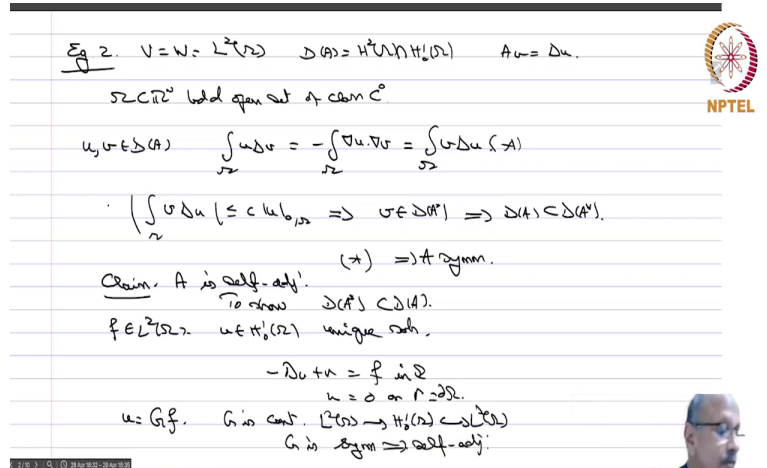 Eg 2. V = W = L²(Ω) D(A) = H²(Ω)∩H¹₀(Ω) Au = Δu.
Ω⊂ℝᴺ bdd open set of class C^∞.
NPTEL
u, v ∈ D(A) ∫_Ω uΔv = -∫_Ω ∇u.∇v = ∫_Ω vΔu (*)
|∫_Ω vΔu| ≤ c|u|₀,Ω ⇒ v ∈ D(A*) ⇒ D(A) ⊂ D(A*).
(*) ⇒ A symm.
Claim. A is self-adj.
To show D(A*) ⊂ D(A).
f ∈ L²(Ω). u ∈ H¹₀(Ω) unique soln.
-Δu + u = f in Ω
u = 0 on Γ = ∂Ω.
u = Gf. G is cont. L²(Ω) → H¹₀(Ω) ↪ L²(Ω)
G is symm ⇒ self-adj.
2 / 10
28 Apr 18:32 - 28 Apr 18:35